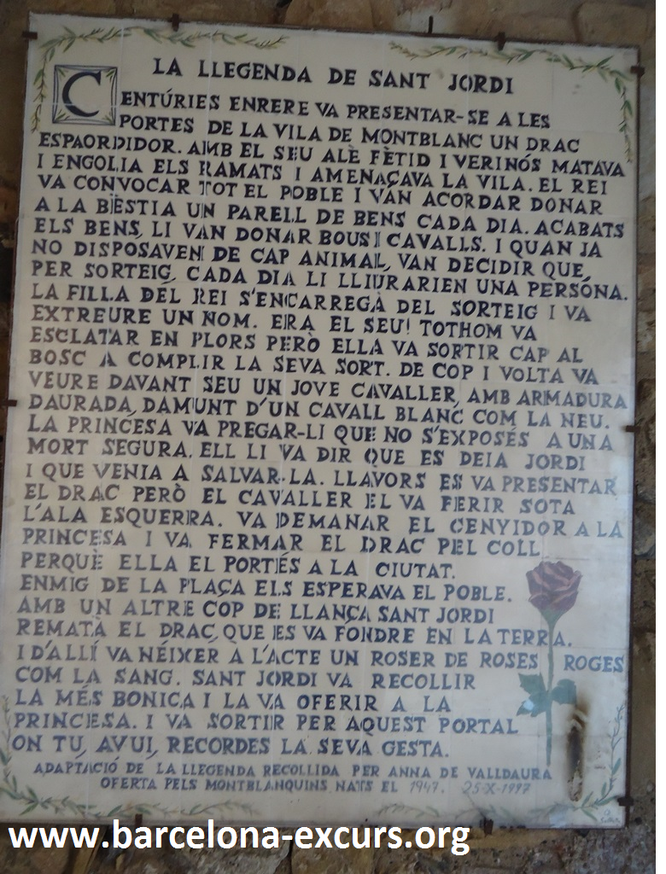 LA LLEGENDA DE SANT JORDI
CENTÚRIES ENRERE VA PRESENTAR-SE A LES
PORTES DE LA VILA DE MONTBLANC UN DRAC
ESPAORDIDOR. AMB EL SEU ALÈ FÈTID I VERINÓS MATAVA
I ENGOLIA ELS RAMATS I AMENAÇAVA LA VILA. EL REI
VA CONVOCAR TOT EL POBLE I VAN ACORDAR DONAR
A LA BÈSTIA UN PARELL DE BENS CADA DIA. ACABATS
ELS BENS, LI VAN DONAR BOUS I CAVALLS. I QUAN JA
NO DISPOSAVEN DE CAP ANIMAL, VAN DECIDIR QUE,
PER SORTEIG, CADA DIA LI LLIURARIEN UNA PERSONA.
LA FILLA DEL REI S'ENCARREGÀ DEL SORTEIG I VA
EXTREURE UN NOM. ERA EL SEU! TOTHOM VA
ESCLATAR EN PLORS PERÒ ELLA VA SORTIR CAP AL
BOSC A COMPLIR LA SEVA SORT. DE COP I VOLTA VA
VEURE DAVANT SEU UN JOVE CAVALLER, AMB ARMADURA
DAURADA, DAMUNT D'UN CAVALL BLANC COM LA NEU.
LA PRINCESA VA PREGAR-LI QUE NO S'EXPOSÉS A UNA
MORT SEGURA. ELL LI VA DIR QUE ES DEIA JORDI
I QUE VENIA A SALVAR-LA. LLAVORS ES VA PRESENTAR
EL DRAC PERÒ EL CAVALLER EL VA FERIR SOTA
L'ALA ESQUERRA. VA DEMANAR EL CENYIDOR A LA
PRINCESA I VA FERMAR EL DRAC PEL COLL
PERQUÈ ELLA EL PORTÉS A LA CIUTAT.
ENMIG DE LA PLAÇA ELS ESPERAVA EL POBLE.
AMB UN ALTRE COP DE LLANÇA SANT JORDI
REMATÀ EL DRAC, QUE ES VA FONDRE EN LA TERRA.
I D'ALLÍ VA NÉIXER A L'ACTE UN ROSER DE ROSES ROGES
COM LA SANG. SANT JORDI VA RECOLLIR
LA MÉS BONICA I LA VA OFERIR A LA
PRINCESA. I VA SORTIR PER AQUEST PORTAL
ON TU, AVUI, RECORDES LA SEVA GESTA.
ADAPTACIÓ DE LA LLEGENDA RECOLLIDA PER ANNA DE VALLDAURA
OFERTA PELS MONTBLANQUINS NATS EL 1947. 25-X-1997
www.barcelona-excurs.org